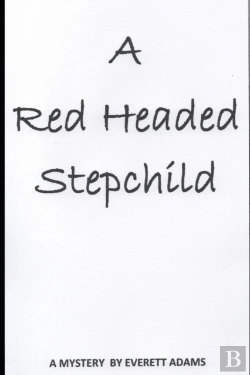 A
Red Headed
Stepchild
A MYSTERY BY EVERETT ADAMS
B